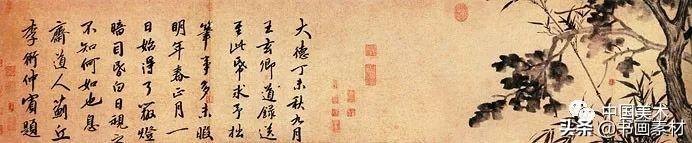 大德丁未秋九月
王玄卿道錄送
至此帋求予拙
筆事多未暇
明年春正月一
日始得了燈
暗目昏白日視之
不知何如也息
齋道人薊丘
李衎仲賓題
中国美术
头条@书画素材